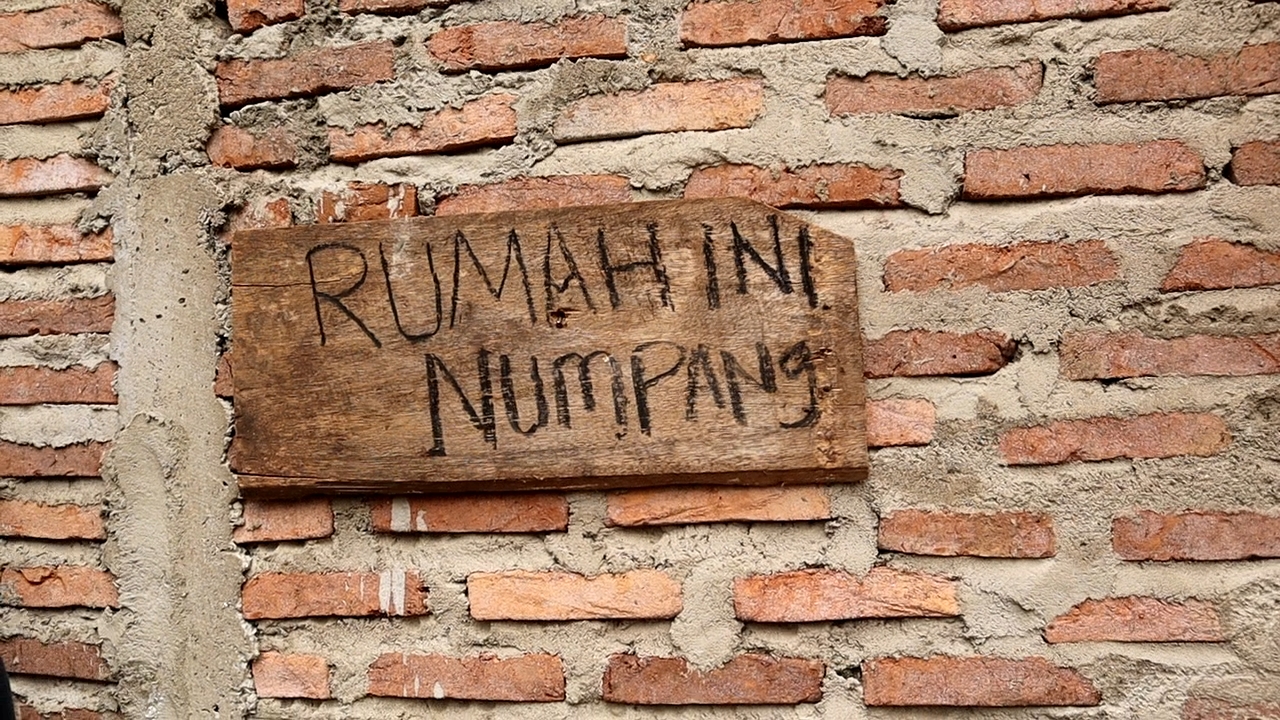 RUMAH INI
NUMPANg